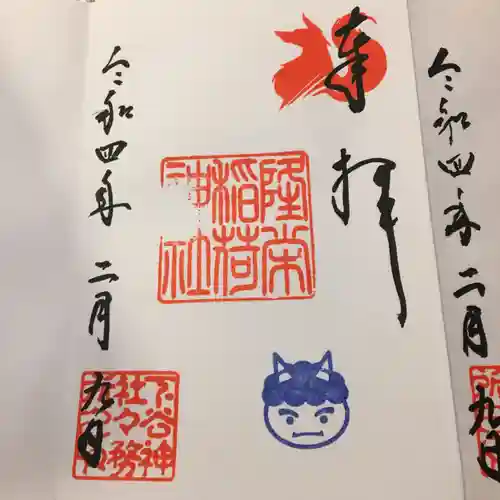 奉拝
隆栄
稲荷
神社
令和四年 二月 九日
下谷神
社々務
令和四年 二月 九日